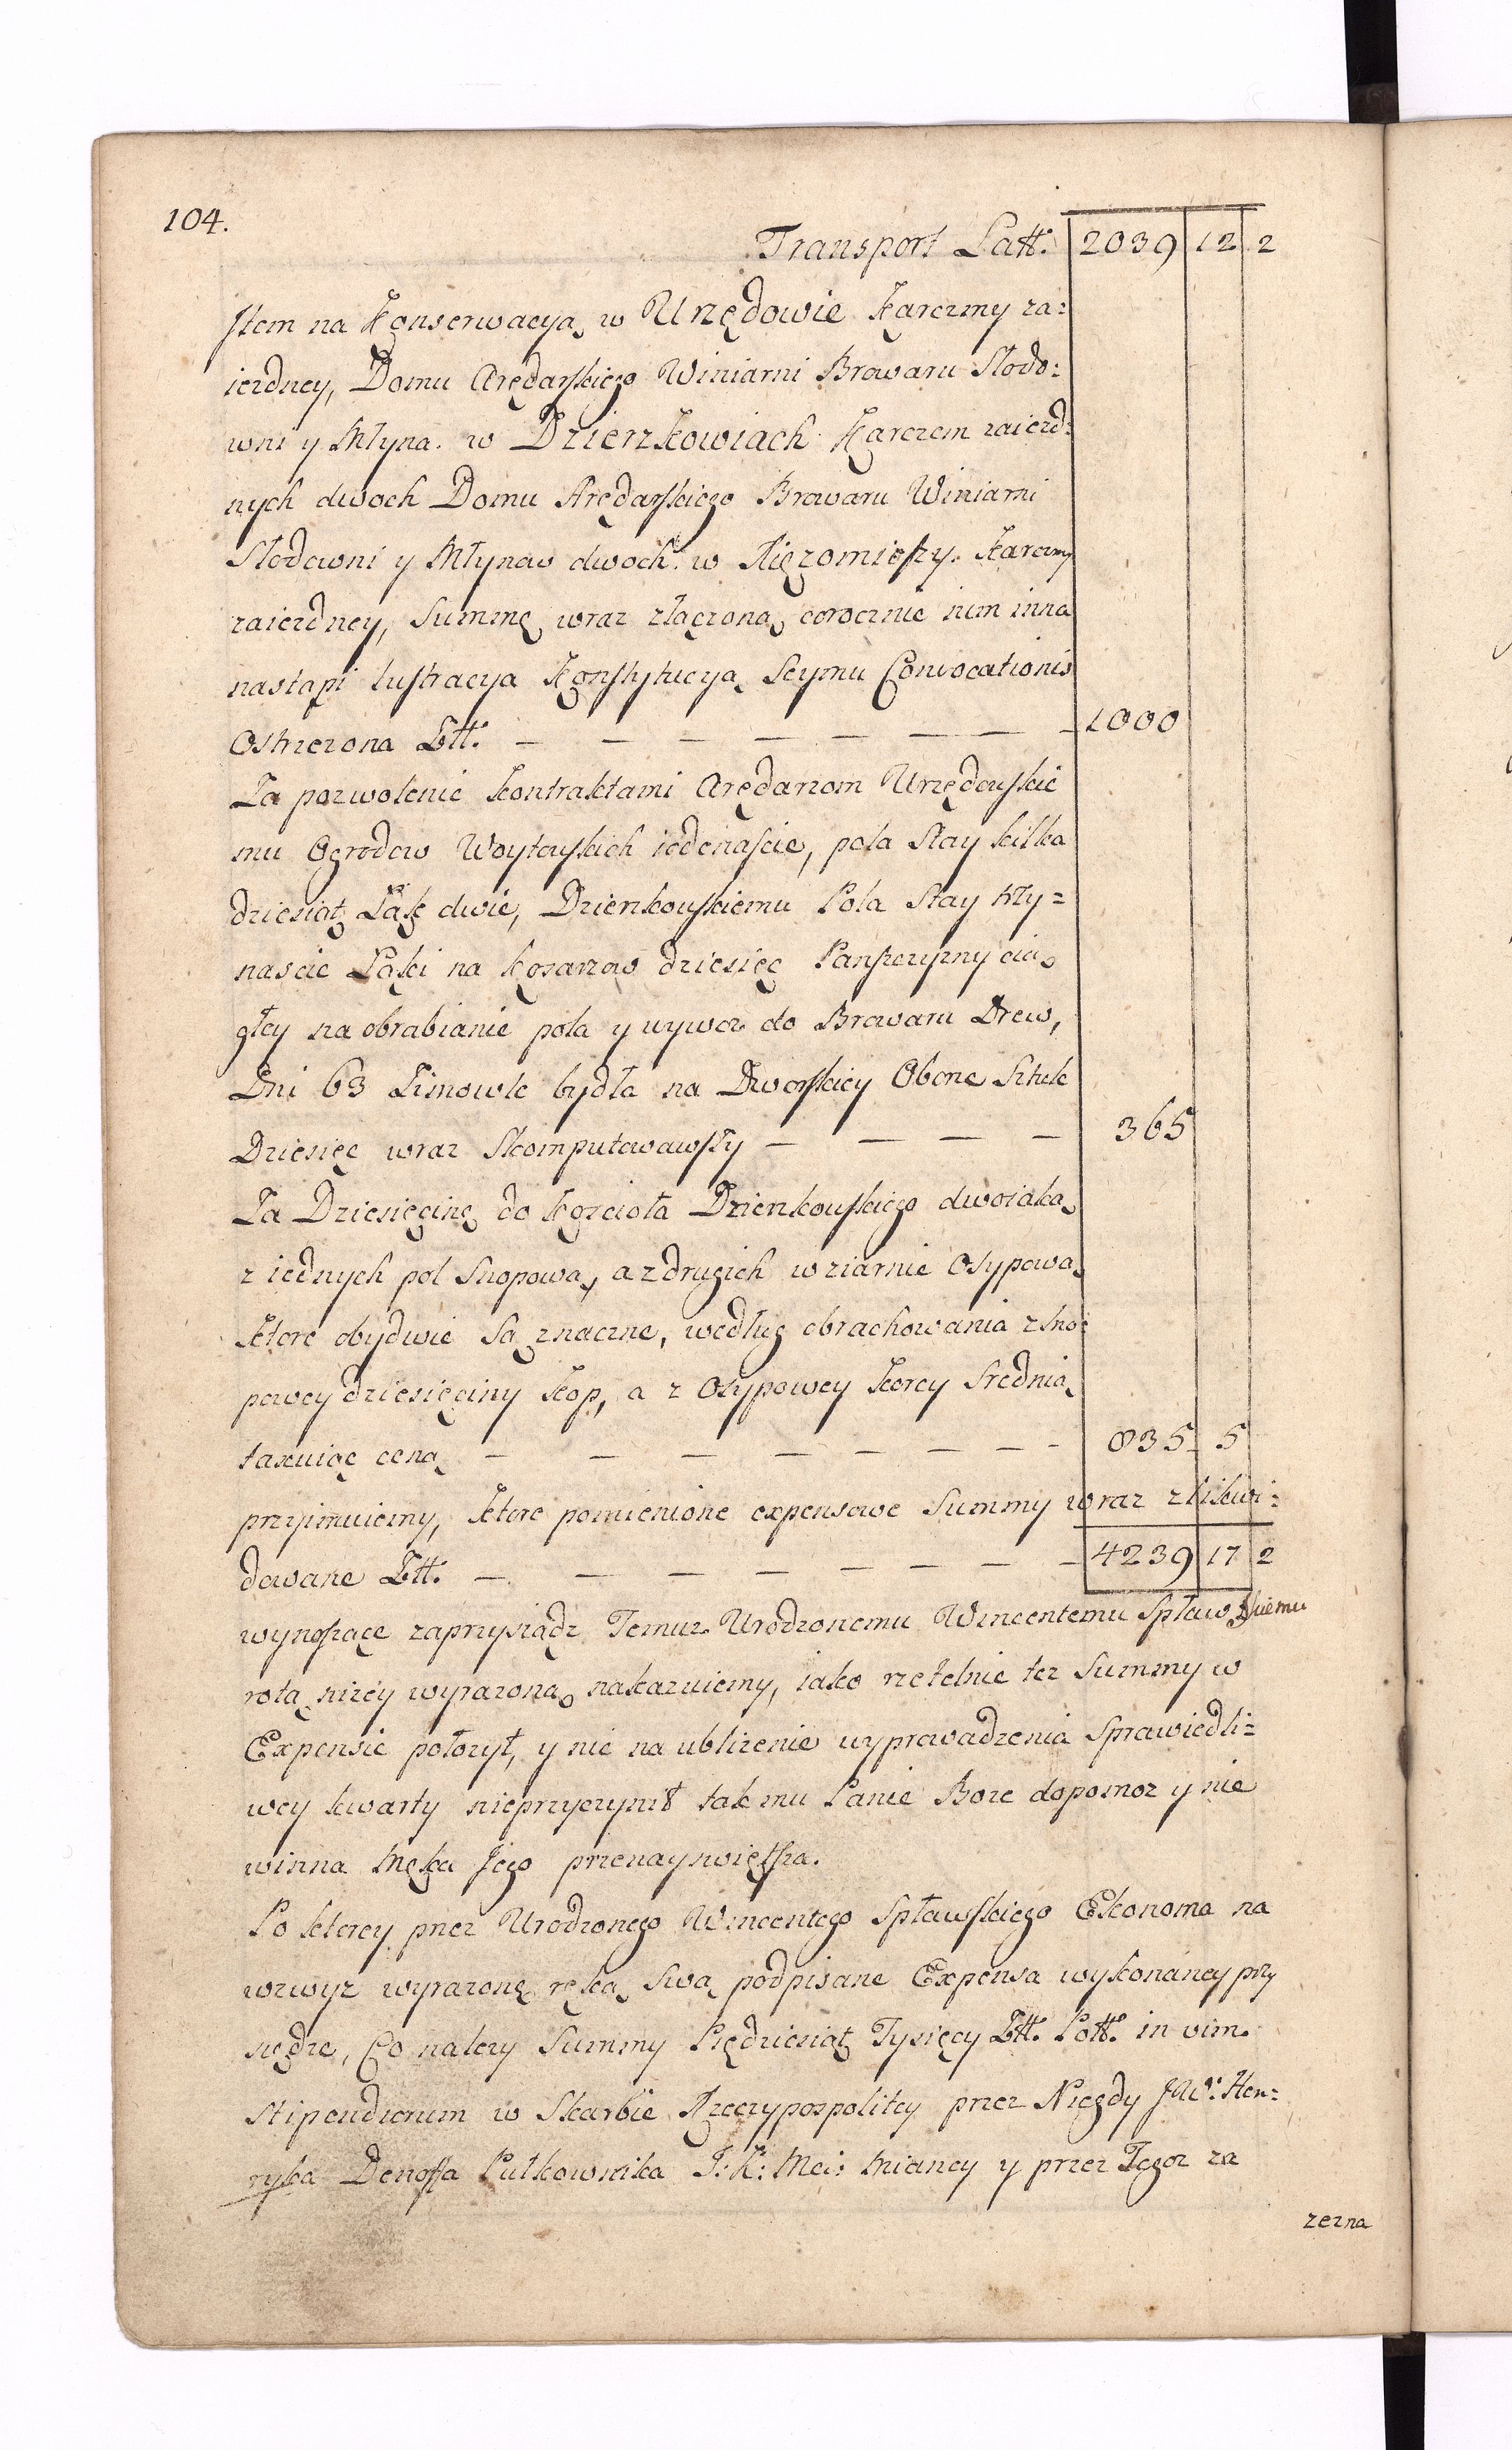 104.
Transport Latt. 2039 12 2
Item na Konserwacyą w Urzędowie Karczmy za=
iezdney, Domu Arędarskiego Winiarni Browaru Słodo=
wni y Młyna. w Dzierzkowiach Karczem zaiezd=
nych dwoch Domu Arędarskiego Browaru Winiarni
Słodowni y Młynow dwoch. w Xięzomieszy. Karczmy
zaiezdney, Summę wraz złączoną corocznie nim inna
nastąpi lustracya Konstytucyą Seymu Convocationis
Ostrzezona Ztt. — — — — — — — 1000
Za pozwolenie kontraktami Arędarzom Urzędowskie
mu Ogrodow Woytowskich iedenaście, pola Stay kilka
dziesiąt Łąk dwie, Dzierzkowskiemu Pola Stay trzy=
nascie Łąki na kosarzow dziesięć Panszczyzny cią
głey na obrabianie pola y wywoz do Browaru Drew,
Dni 63 Zimowle bydła na Dworskiey Oborze Sztuk
Dziesięć wraz Skomputowawszy — — — — 365
Za Dziesięcinę do kościoła Dzierzkowskiego dwoiaką
z iednych pol Snopową, a z drugich w ziarnie Osypową
ktore obydwie są znaczne, według obrachowania z sno=
powey dziesięciny kop, a z Osypowey korcy Srednią
taxuiąc ceną — — — — — — — — 835 5
przyimuiemy, ktore pomienione expensowe Summy wraz zlikwi=
dowane Ztt. — — — — — — — 4239 17 2
wynoszące zaprzysiądz Temuz Urodzonemu Wincentemu Spławskiemu
rotą nizey wyrazoną nakazuiemy, iako rzetelnie tez Summy w
Expensie połozył, y nic na ublizenie wyprowadzenia Sprawiedli=
wey kwarty nieprzyczynił tak mu Panie Boze dopomoz y nie
winna Męka Jego przenayswiętsza.
Po ktorey przez Urodzonego Wincentego Spławskiego Ekonoma na
wzwyz wyrazonę ręką swą podpisane Expensa wykonaney przy
siędze, Co nalezy Summy Piędziesiąt Tysięcy Ztt. Pott. in vim
stipendiorum w Skarbie Rzeczypospolitey przez Niegdy JW: Hen=
ryka Denoffa Pułkownika J: K: Mci: Mianey y przez Tegoz za
zezna